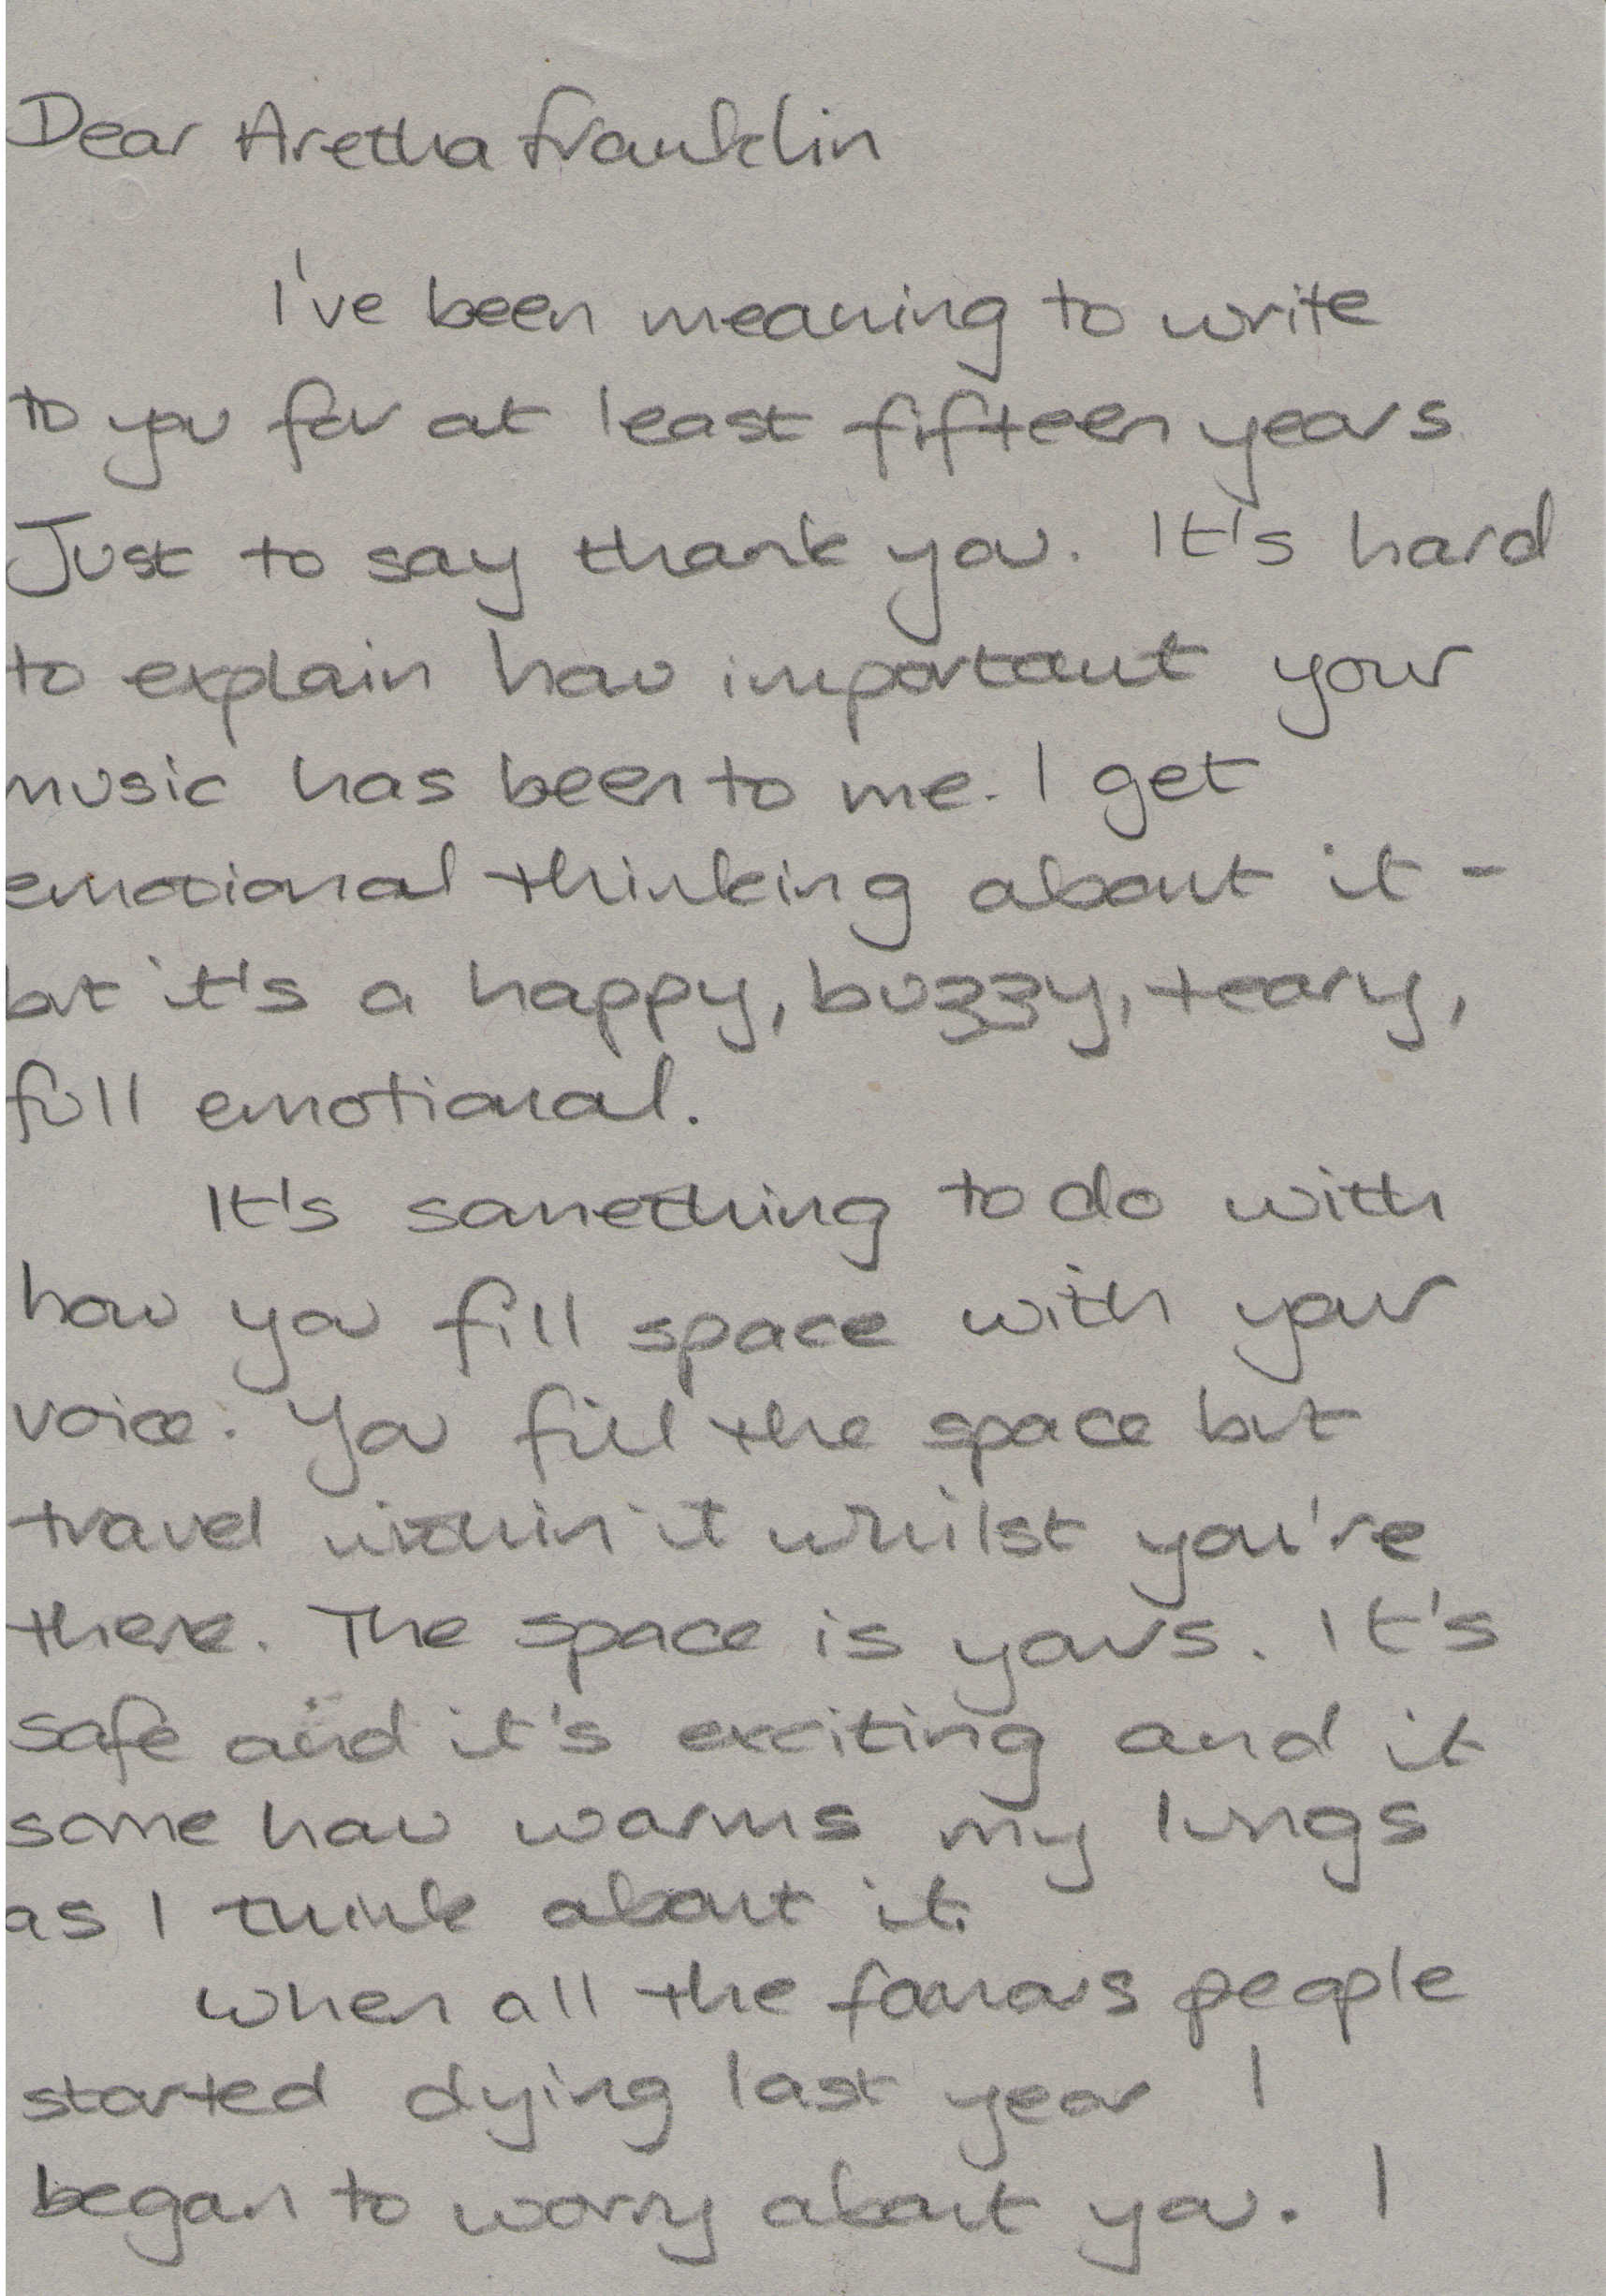 Dear Aretha Franklin
I've been meaning to write
to you for at least fifteen years
Just to say thank you. It's hard
to explain how important your
music has been to me. I get
emotional thinking about it -
but it's a happy, buzzy, teary,
full emotional.
It's something to do with
how you fill space with your
voice. You fill the space but
travel within it whilst you're
there. The space is yours. It's
safe and it's exciting and it
some how warms my lungs
as I think about it.
When all the famous people
started dying last year I
began to worry about you. I